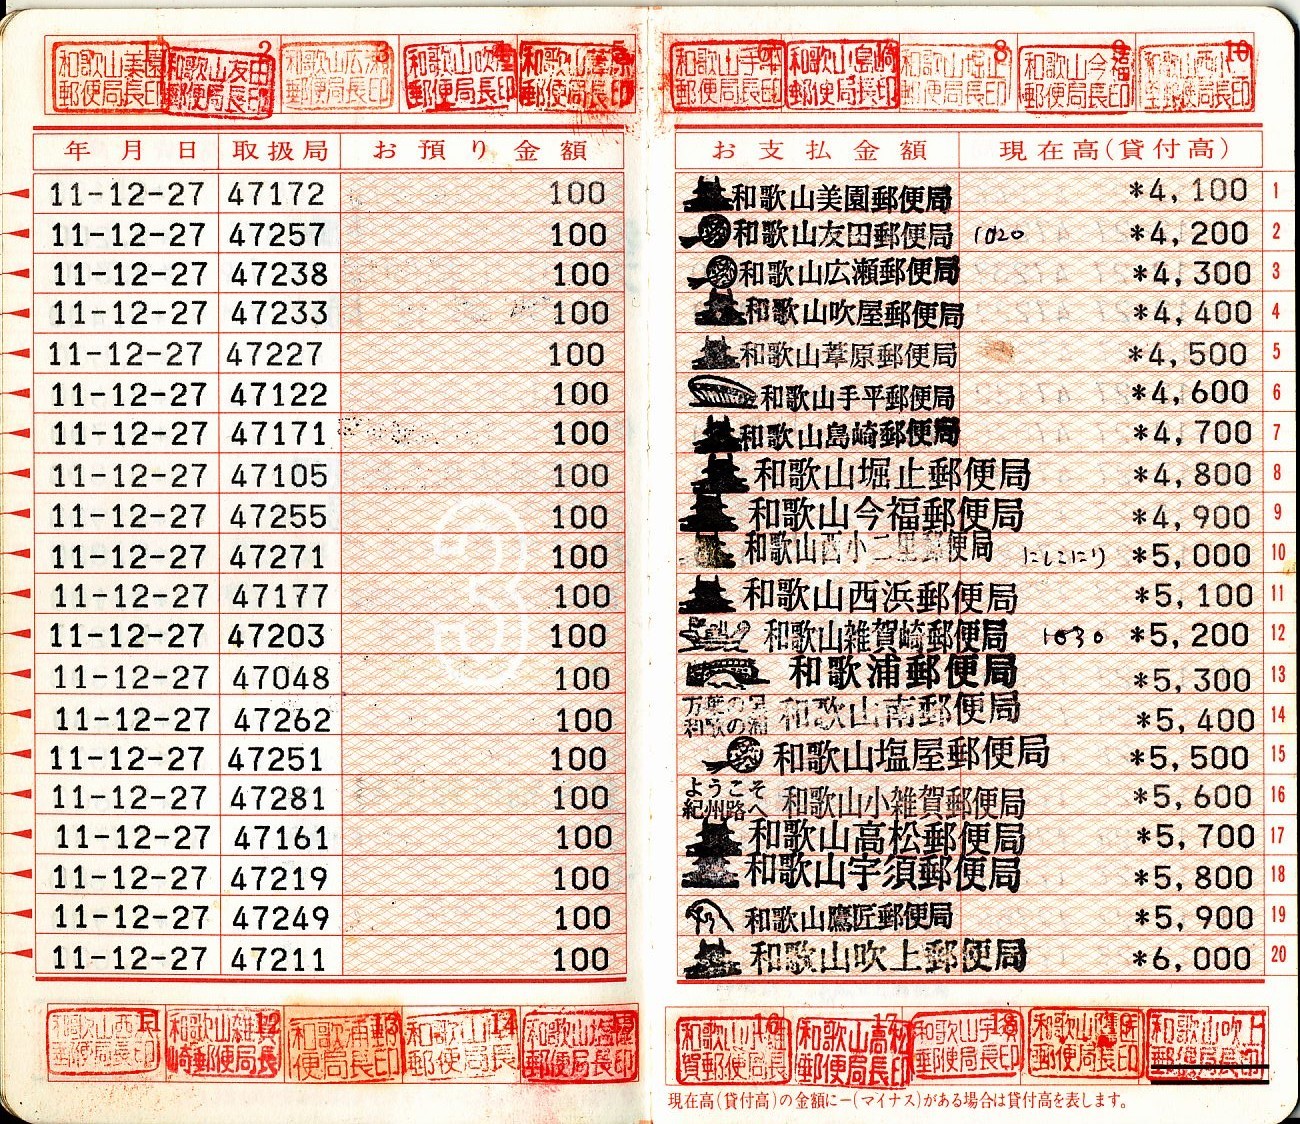 和歌山美園郵便局長印 1 和歌山友田郵便局長印 2 和歌山広瀬郵便局長印 3 和歌山吹屋郵便局長印 和歌山葦原郵便局長印 5 和歌山手平郵便局長印 和歌山島崎郵便局長印 和歌山堀止郵便局長印 8 和歌山今福郵便局長印 9 10
年月日 取扱局 お預り金額 お支払金額 現在高(貸付高)
11-12-27 47172 100 和歌山美園郵便局 *4,100 1
11-12-27 47257 100 和歌山友田郵便局 1020 *4,200 2
11-12-27 47238 100 和歌山広瀬郵便局 *4,300 3
11-12-27 47233 100 和歌山吹屋郵便局 *4,400 4
11-12-27 47227 100 和歌山葦原郵便局 *4,500 5
11-12-27 47122 100 和歌山手平郵便局 *4,600 6
11-12-27 47171 100 和歌山島崎郵便局 *4,700 7
11-12-27 47105 100 和歌山堀止郵便局 *4,800 8
11-12-27 47255 100 和歌山今福郵便局 *4,900 9
11-12-27 47271 100 和歌山西小二里郵便局 にしこにり *5,000 10
11-12-27 47177 100 和歌山西浜郵便局 *5,100 11
11-12-27 47203 100 和歌山雑賀崎郵便局 1030 *5,200 12
11-12-27 47048 100 和歌浦郵便局 *5,300 13
11-12-27 47262 100 和歌の浦 和歌山南郵便局 *5,400 14
11-12-27 47251 100 和歌山塩屋郵便局 *5,500 15
11-12-27 47281 100 ようこそ紀州路へ 和歌山小雑賀郵便局 *5,600 16
11-12-27 47161 100 和歌山高松郵便局 *5,700 17
11-12-27 47219 100 和歌山宇須郵便局 *5,800 18
11-12-27 47249 100 和歌山鷹匠郵便局 *5,900 19
11-12-27 47211 100 和歌山吹上郵便局 *6,000 20
3
和歌山雑賀崎郵便局長印 12 和歌浦郵便局長印 13 14 和歌山小雑賀郵便局長印 16 和歌山高松郵便局長印 17 和歌山宇須郵便局長印 18
現在高(貸付高)の金額に-(マイナス)がある場合は貸付高を表します。